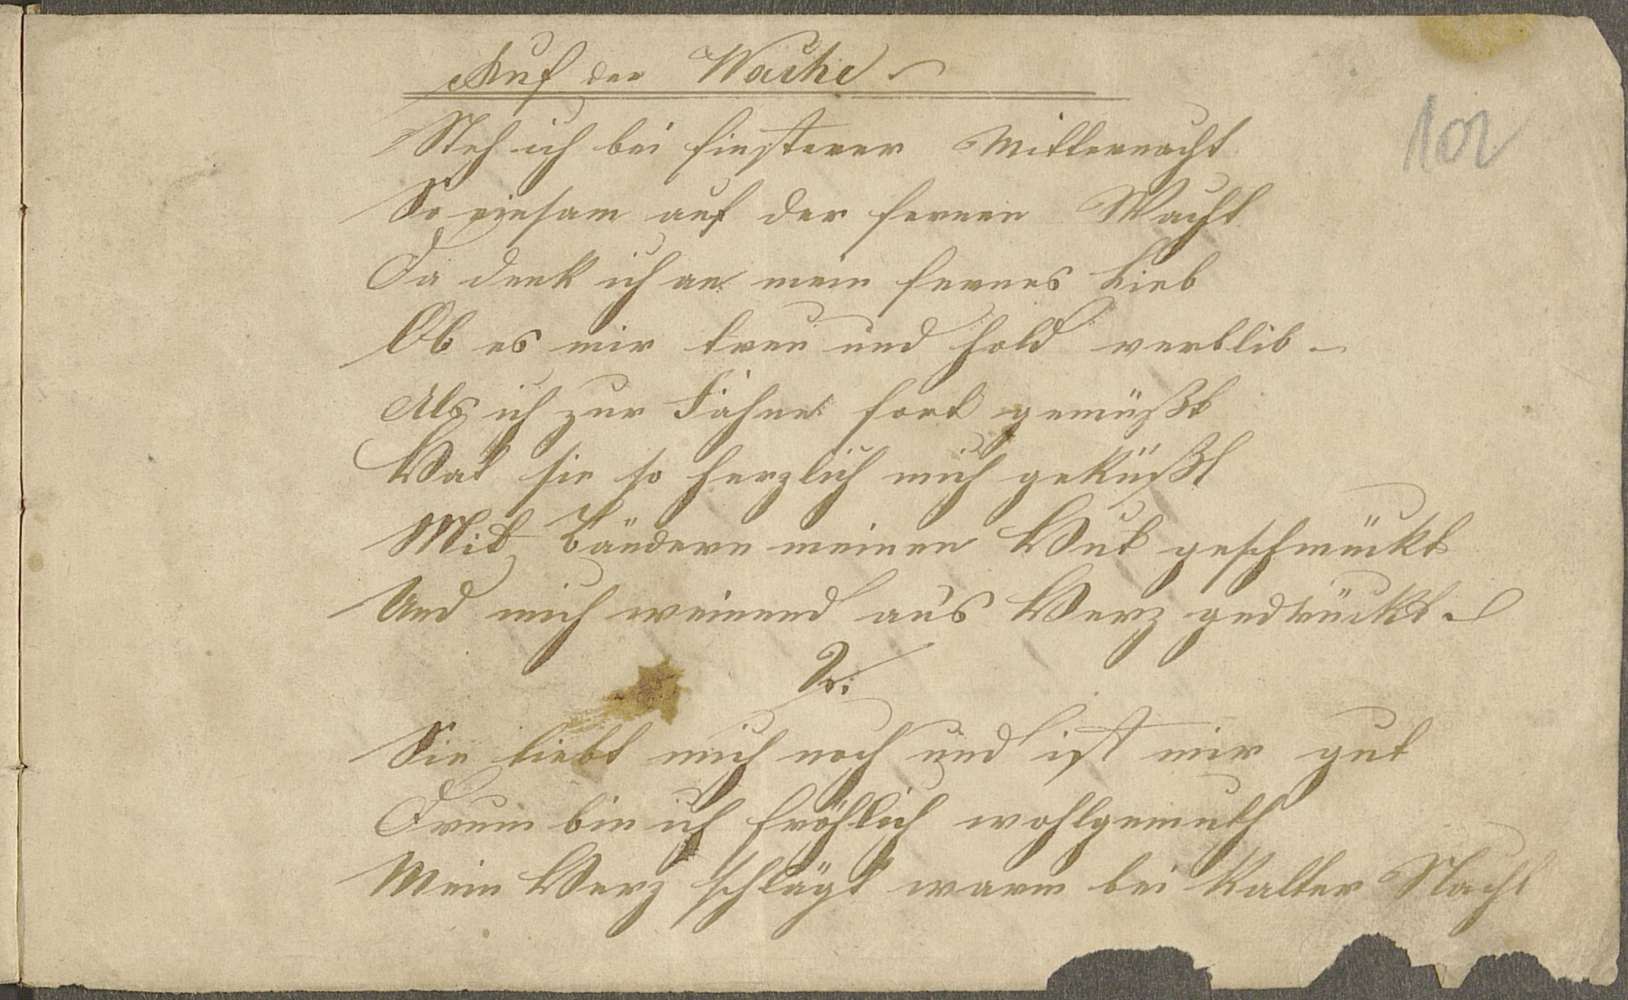 Auf der Wache
102
Steh ich bei finsterer Mitternacht
So einsam auf der fernen Wacht
Da denk ich an mein fernes Lieb
Ob es mir treu und hold verblib
Als ich zur Fahne fort gemüßt
Hat sie so herzlich mich geküßt
Mit Bändern meinen Hut geschmückt
Und mich weinend ans Herz gedrückt
2.
Sie liebt mich noch und ist mir gut
Drum bin ich fröhlich wohlgemuth
Mein Herz schlägt warm bei kalter Nacht